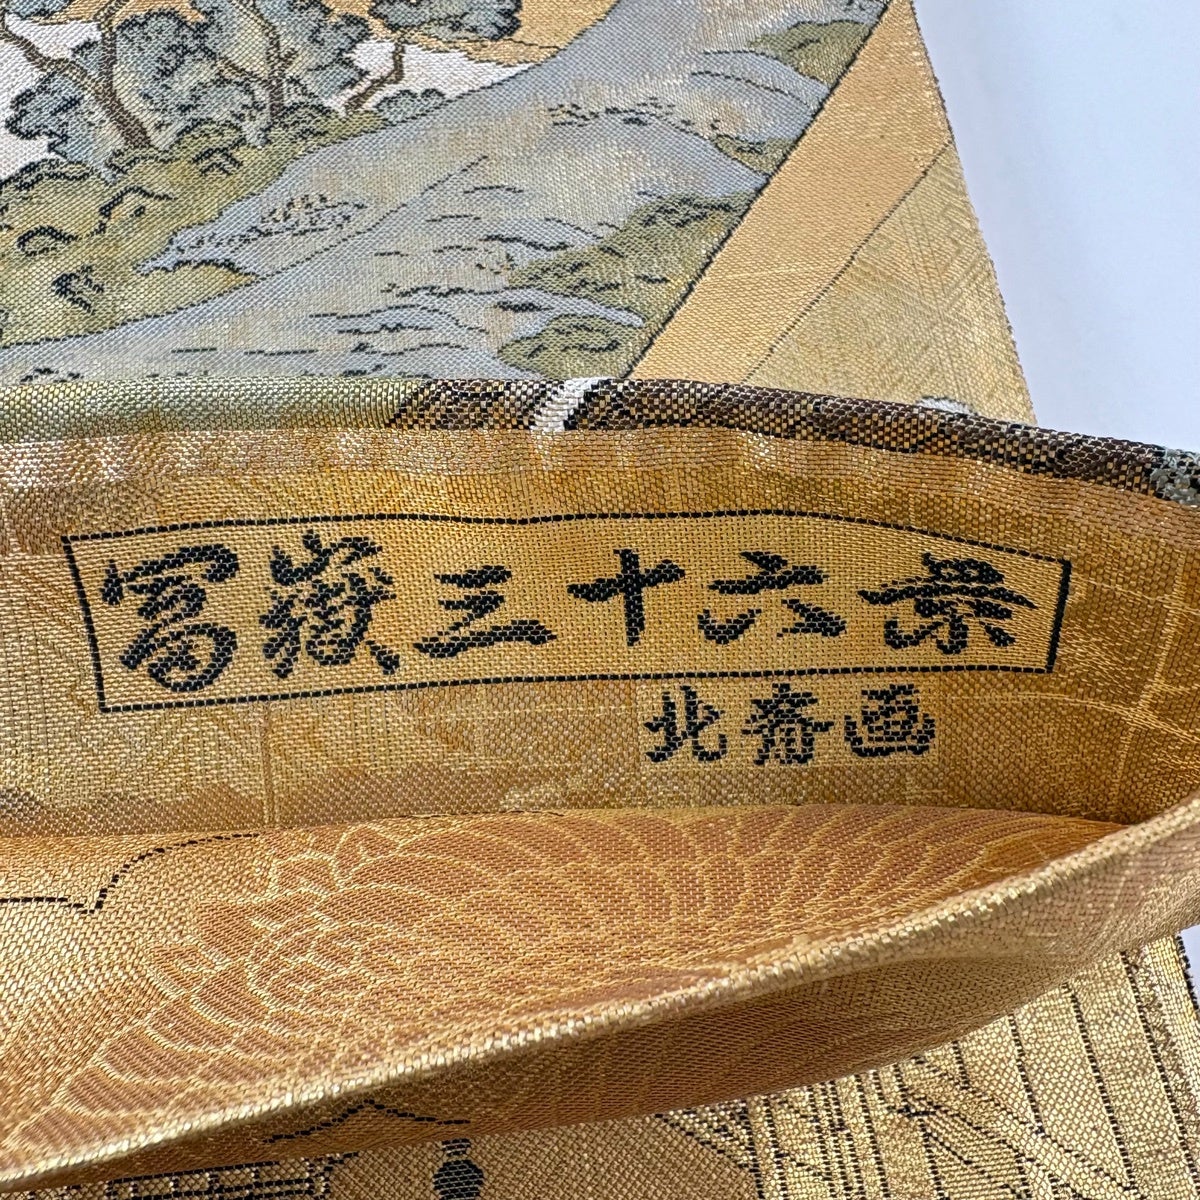 冨嶽三十六景
北斎画